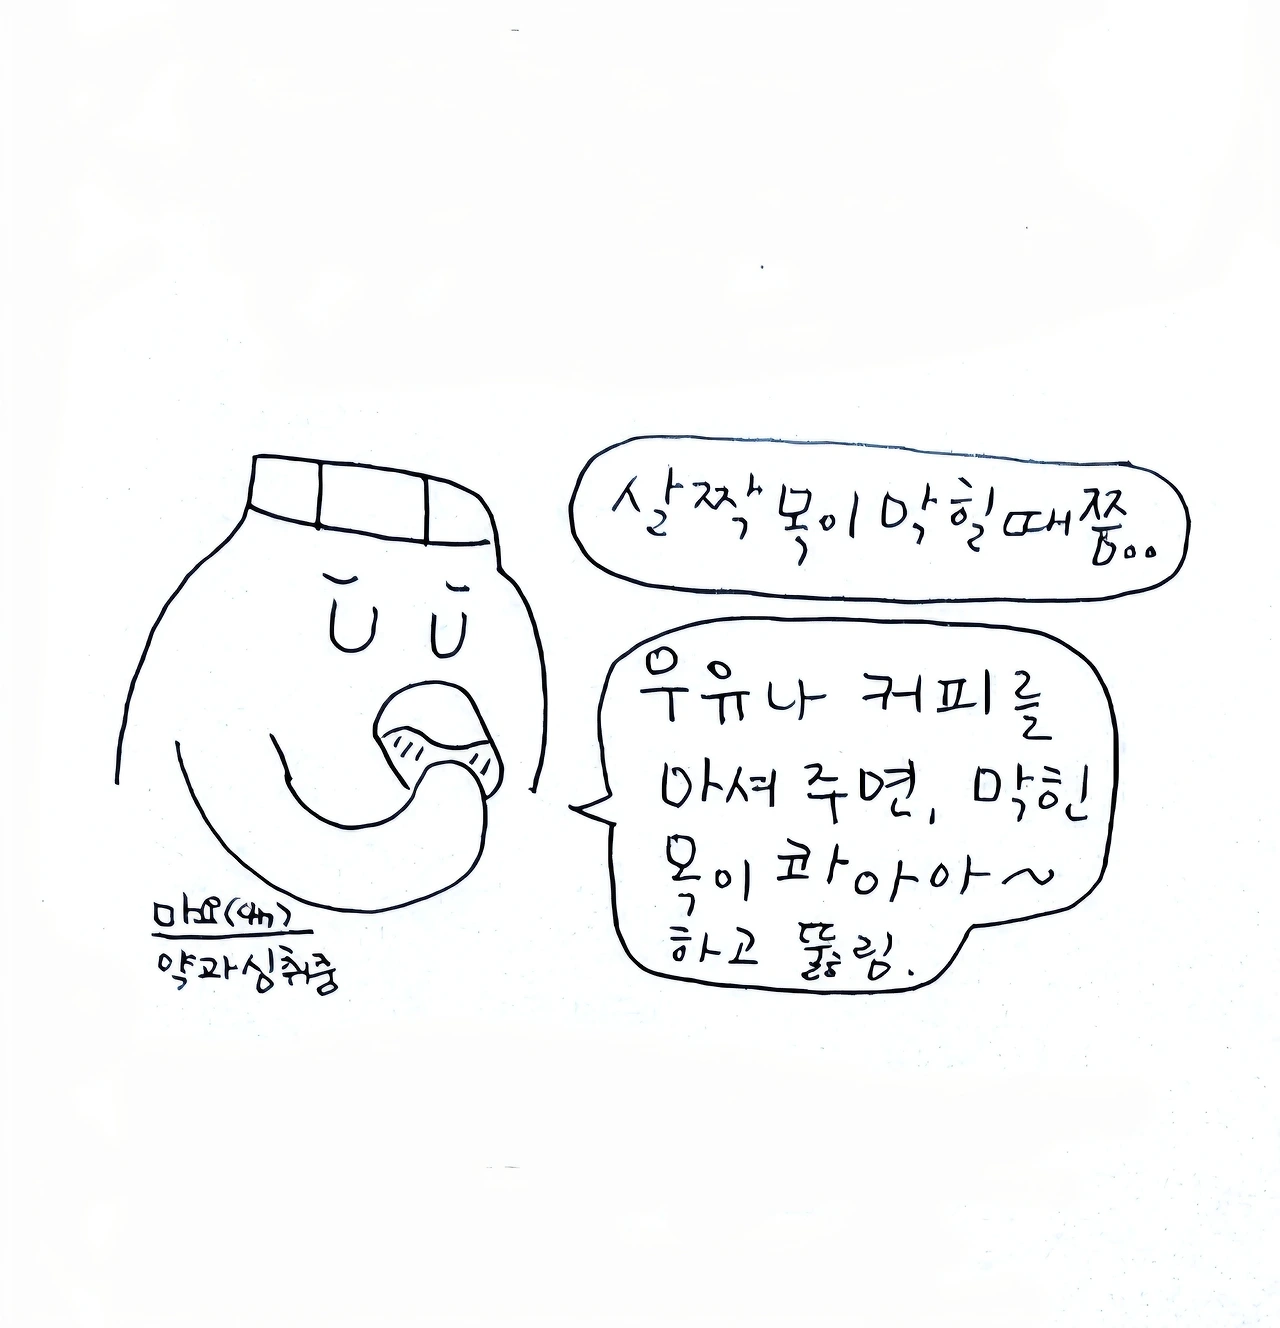 살짝 목이 막힐 때쯤..
우유나 커피를
마셔 주면, 막힌
목이 콰아아~
하고 뚫림.
마요(4n)
약과 심취중